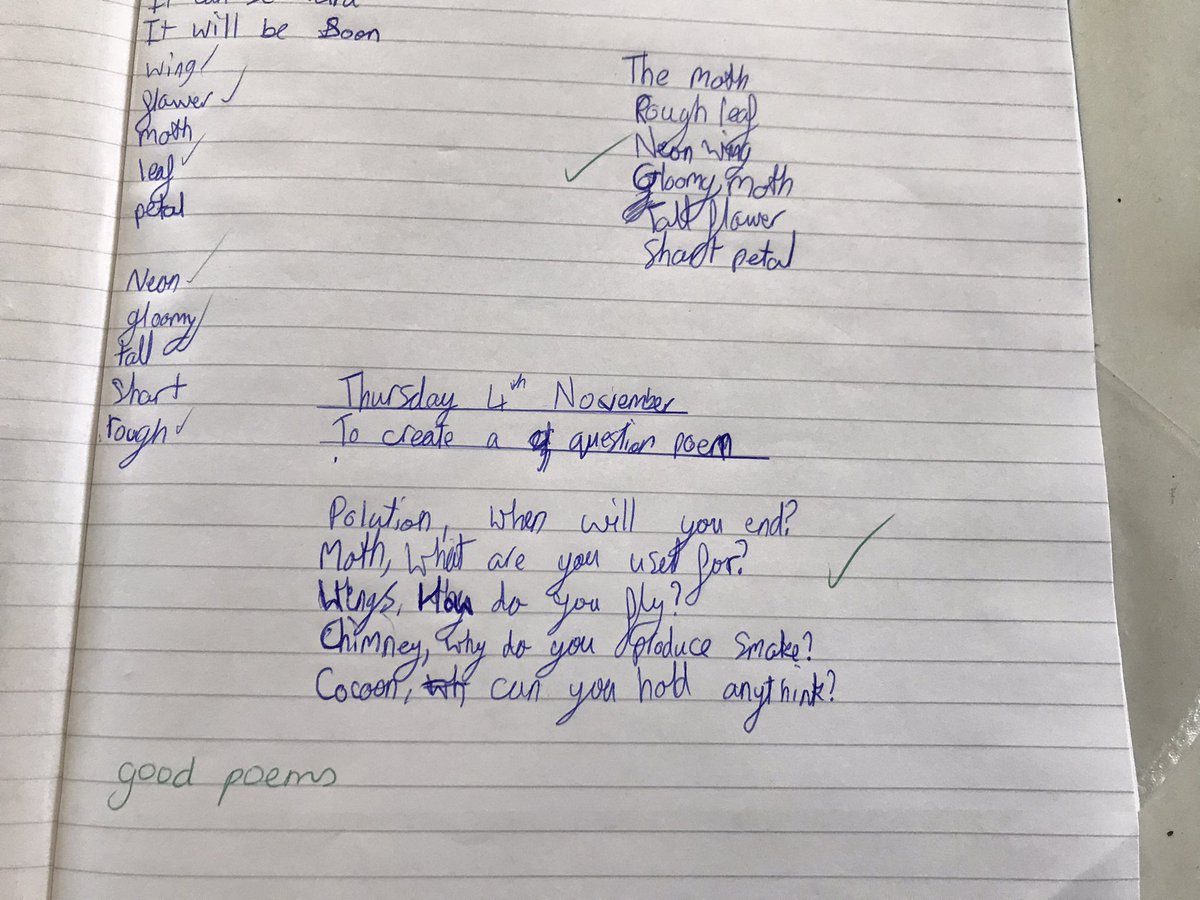 It will be Soon
wing
flower
moth
leaf
petal
Neon
gloomy
tall
short
rough
The moth
Rough leaf
Neon wing
Gloomy moth
Tall flower
Short petal
Thursday 4th November
To create a question poem
Polution, when will you end?
Moth, What are you uset for?
Wings, How do you fly?
Chimney, why do you produce smoke?
Cocoon, can you hold anythink?
good poems